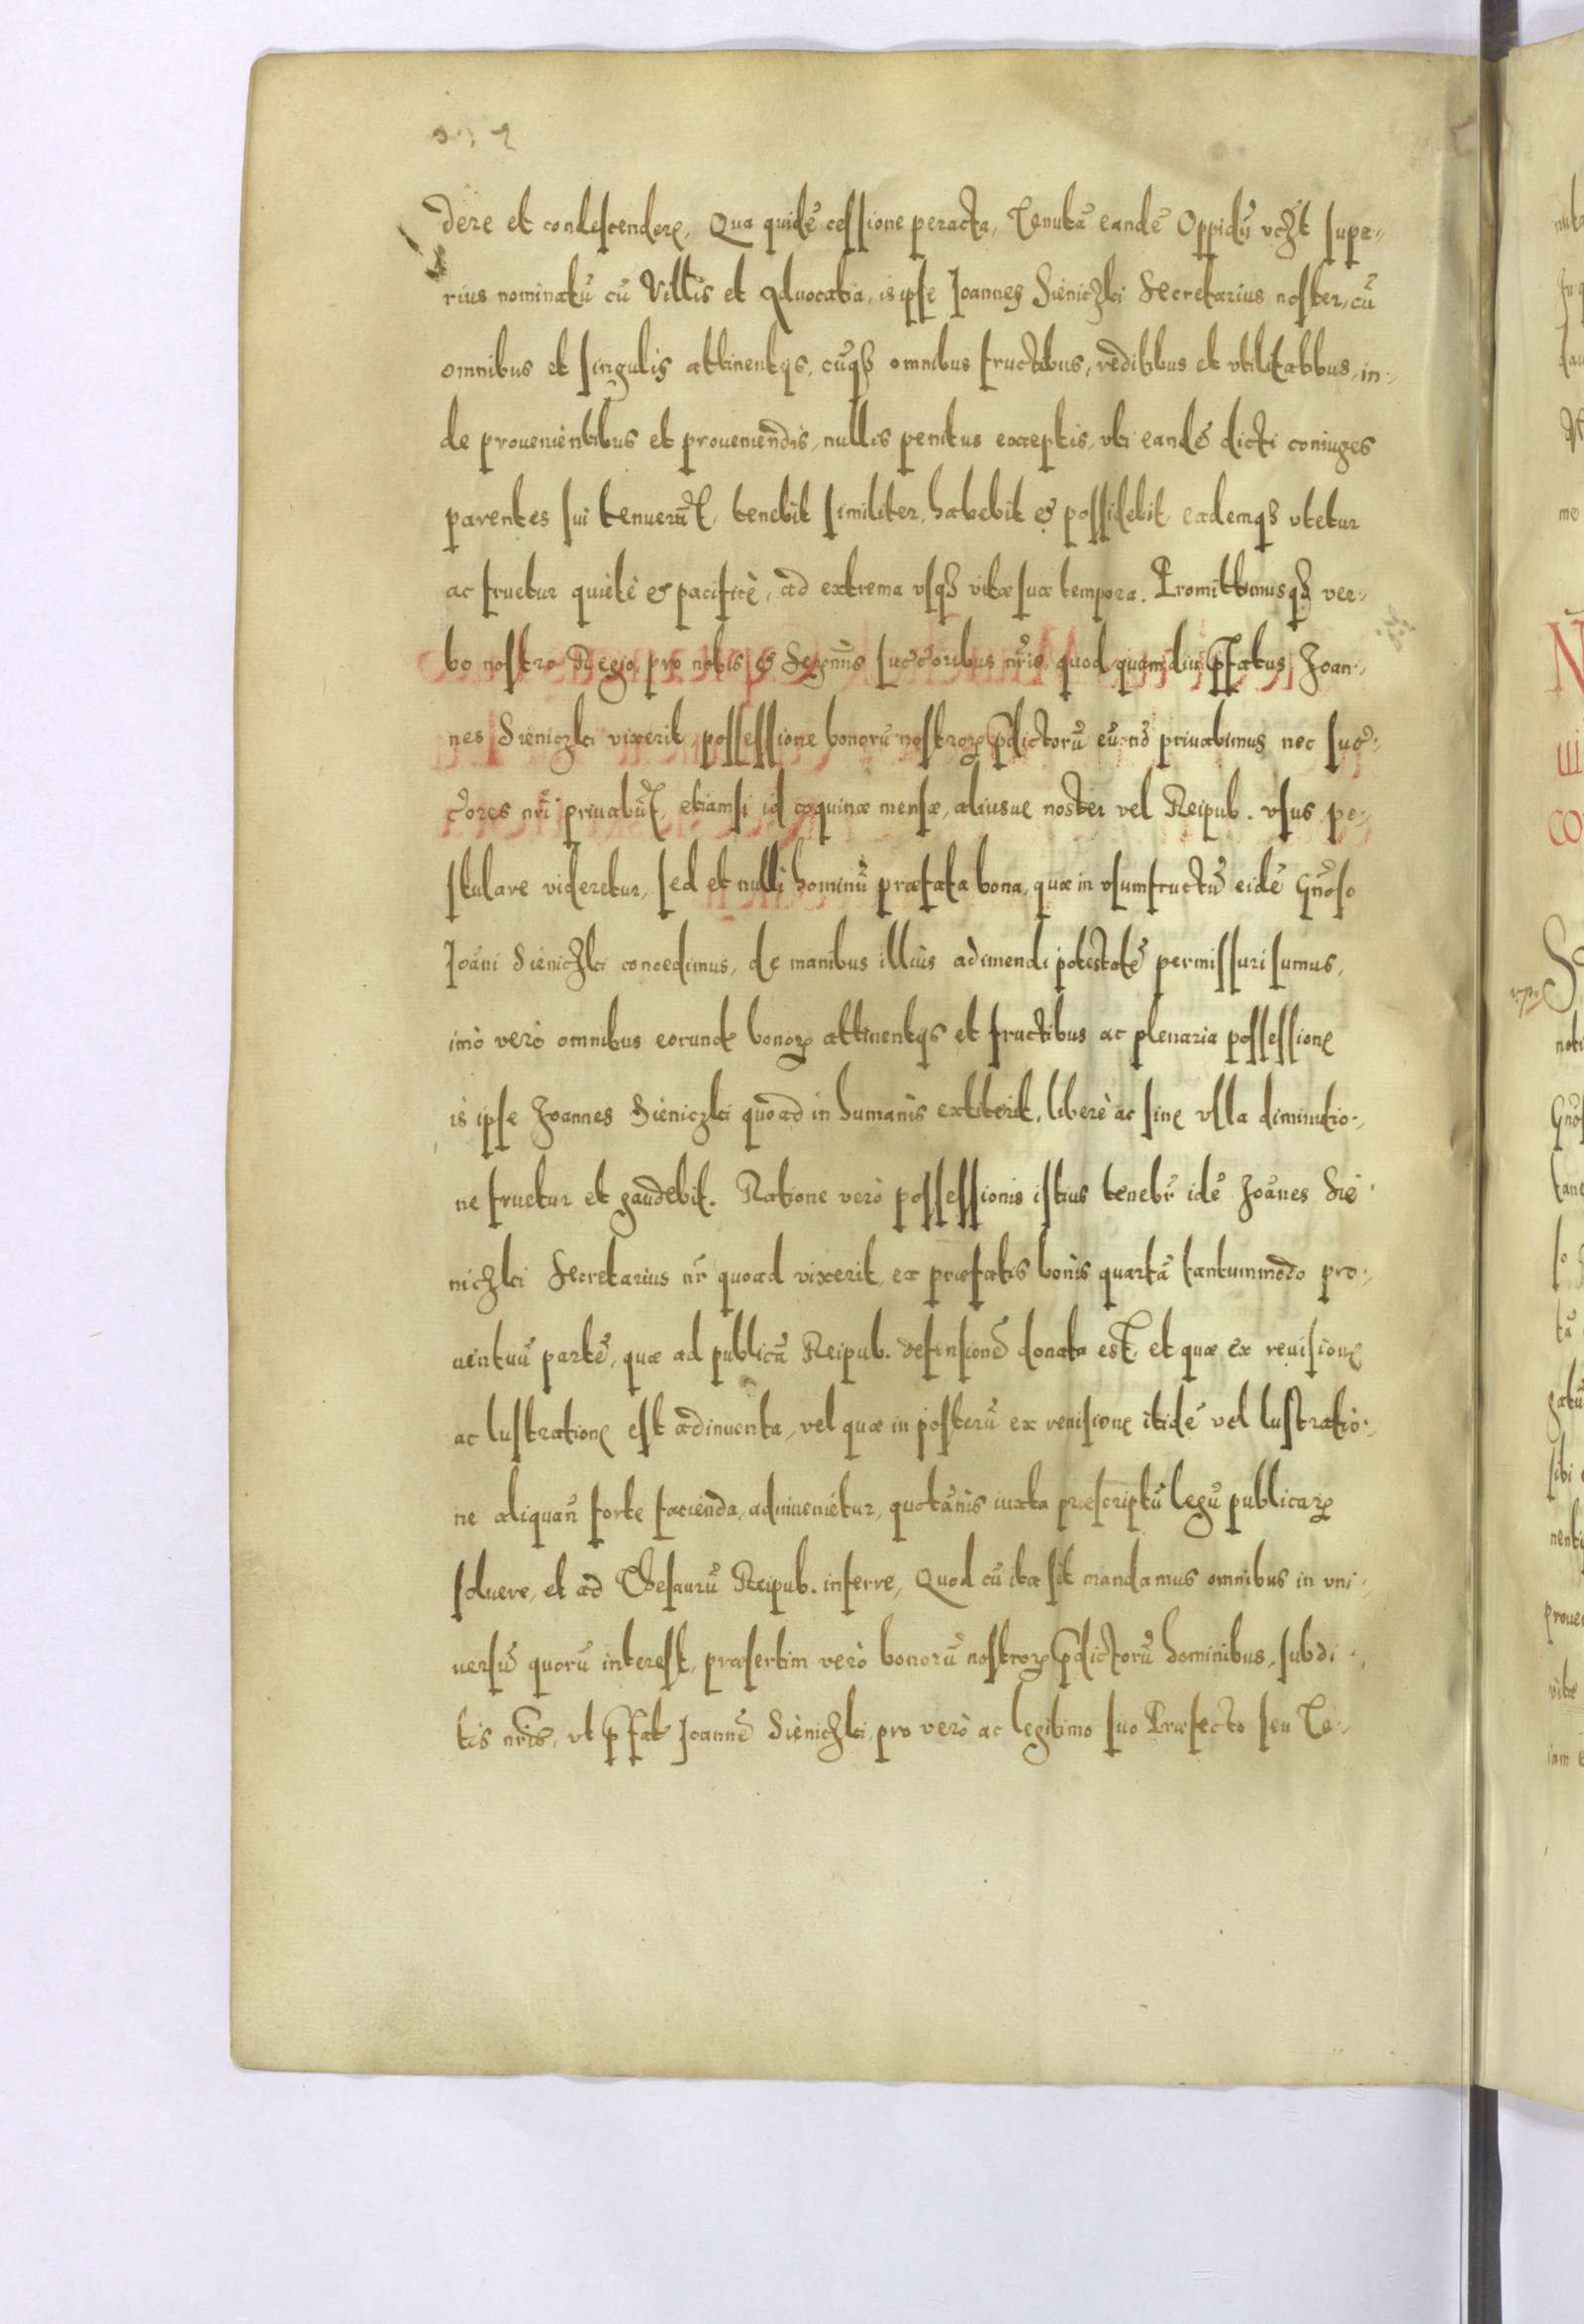 dere et condescendere, Qua quidē cessione peracta, Tenutā eandē Oppidū vczt supe-
rius nominatū cū Villis et Aduocatia, is ipse Joannes Sieniczki Secretarius noster, cū
omnibus et singulis attinentijs, cūq3 omnibus fructibus, reditibus et vtilitatibus, in-
de prouenientibus et proueniendis, nullis penitus exceptis, vti eandē dicti coniuges
parentes sui tenuerūt, tenebit similiter, habebit & possidebit eademq3 vtetur
ac fruetur quietè & pacificè, ad extrema vsq3 vitæ suæ tempora. Promittimusq3 ver-
bo nostro Regio, pro nobis & Serenmis succoribus nris, quod quamdiu pfatus Joan-
nes Sieniczki vixerit, possessione bonorū nostroꝝ pdictorū eund priuabimus nec suc-
cores nri priuabūt, etiamsi id coquinæ mensæ, aliusue noster vel Reipub. vsus po-
stulare videretur, sed et nulli hominū præfata bona, quæ in vsumfructū eidē Gnoso
Joāni Sieniczki concedimus, de manibus illius adimendi potestatē permissuri sumus,
imò verò omnibus eorundē bonoꝝ attinentijs et fructibus ac plenaria possessione
is ipse Joannes Sieniczki quoad in humanis extiterit, liberè ac sine vlla diminutio-
ne fruetur et gaudebit. Ratione verò possessionis istius tenebr idē Joānes Sie-
niczki Secretarius nr quoad vixerit, ex præfatis bonis quartā tantummodo pro-
uentuū partē, quæ ad publicā Reipub. defensionē donata est, et quæ ex reuisione
ac lustratione est adinuenta, vel quæ in posterū ex reuisione itidē vel lustratio-
ne aliquan forte facienda, adinuenietur, quotānis iuxta præscriptū legū publicaꝝ
soluere, et ad Thesaurū Reipub. inferre, Quod cū ita sit mandamus omnibus in vni-
uersū quorū interest, præsertim verò bonorū nostroꝝ pdictorū hominibus, subdi-
tis nris, vt pfat Joannē Sieniczki, pro verò ac legitimo suo Præfecto seu Te-